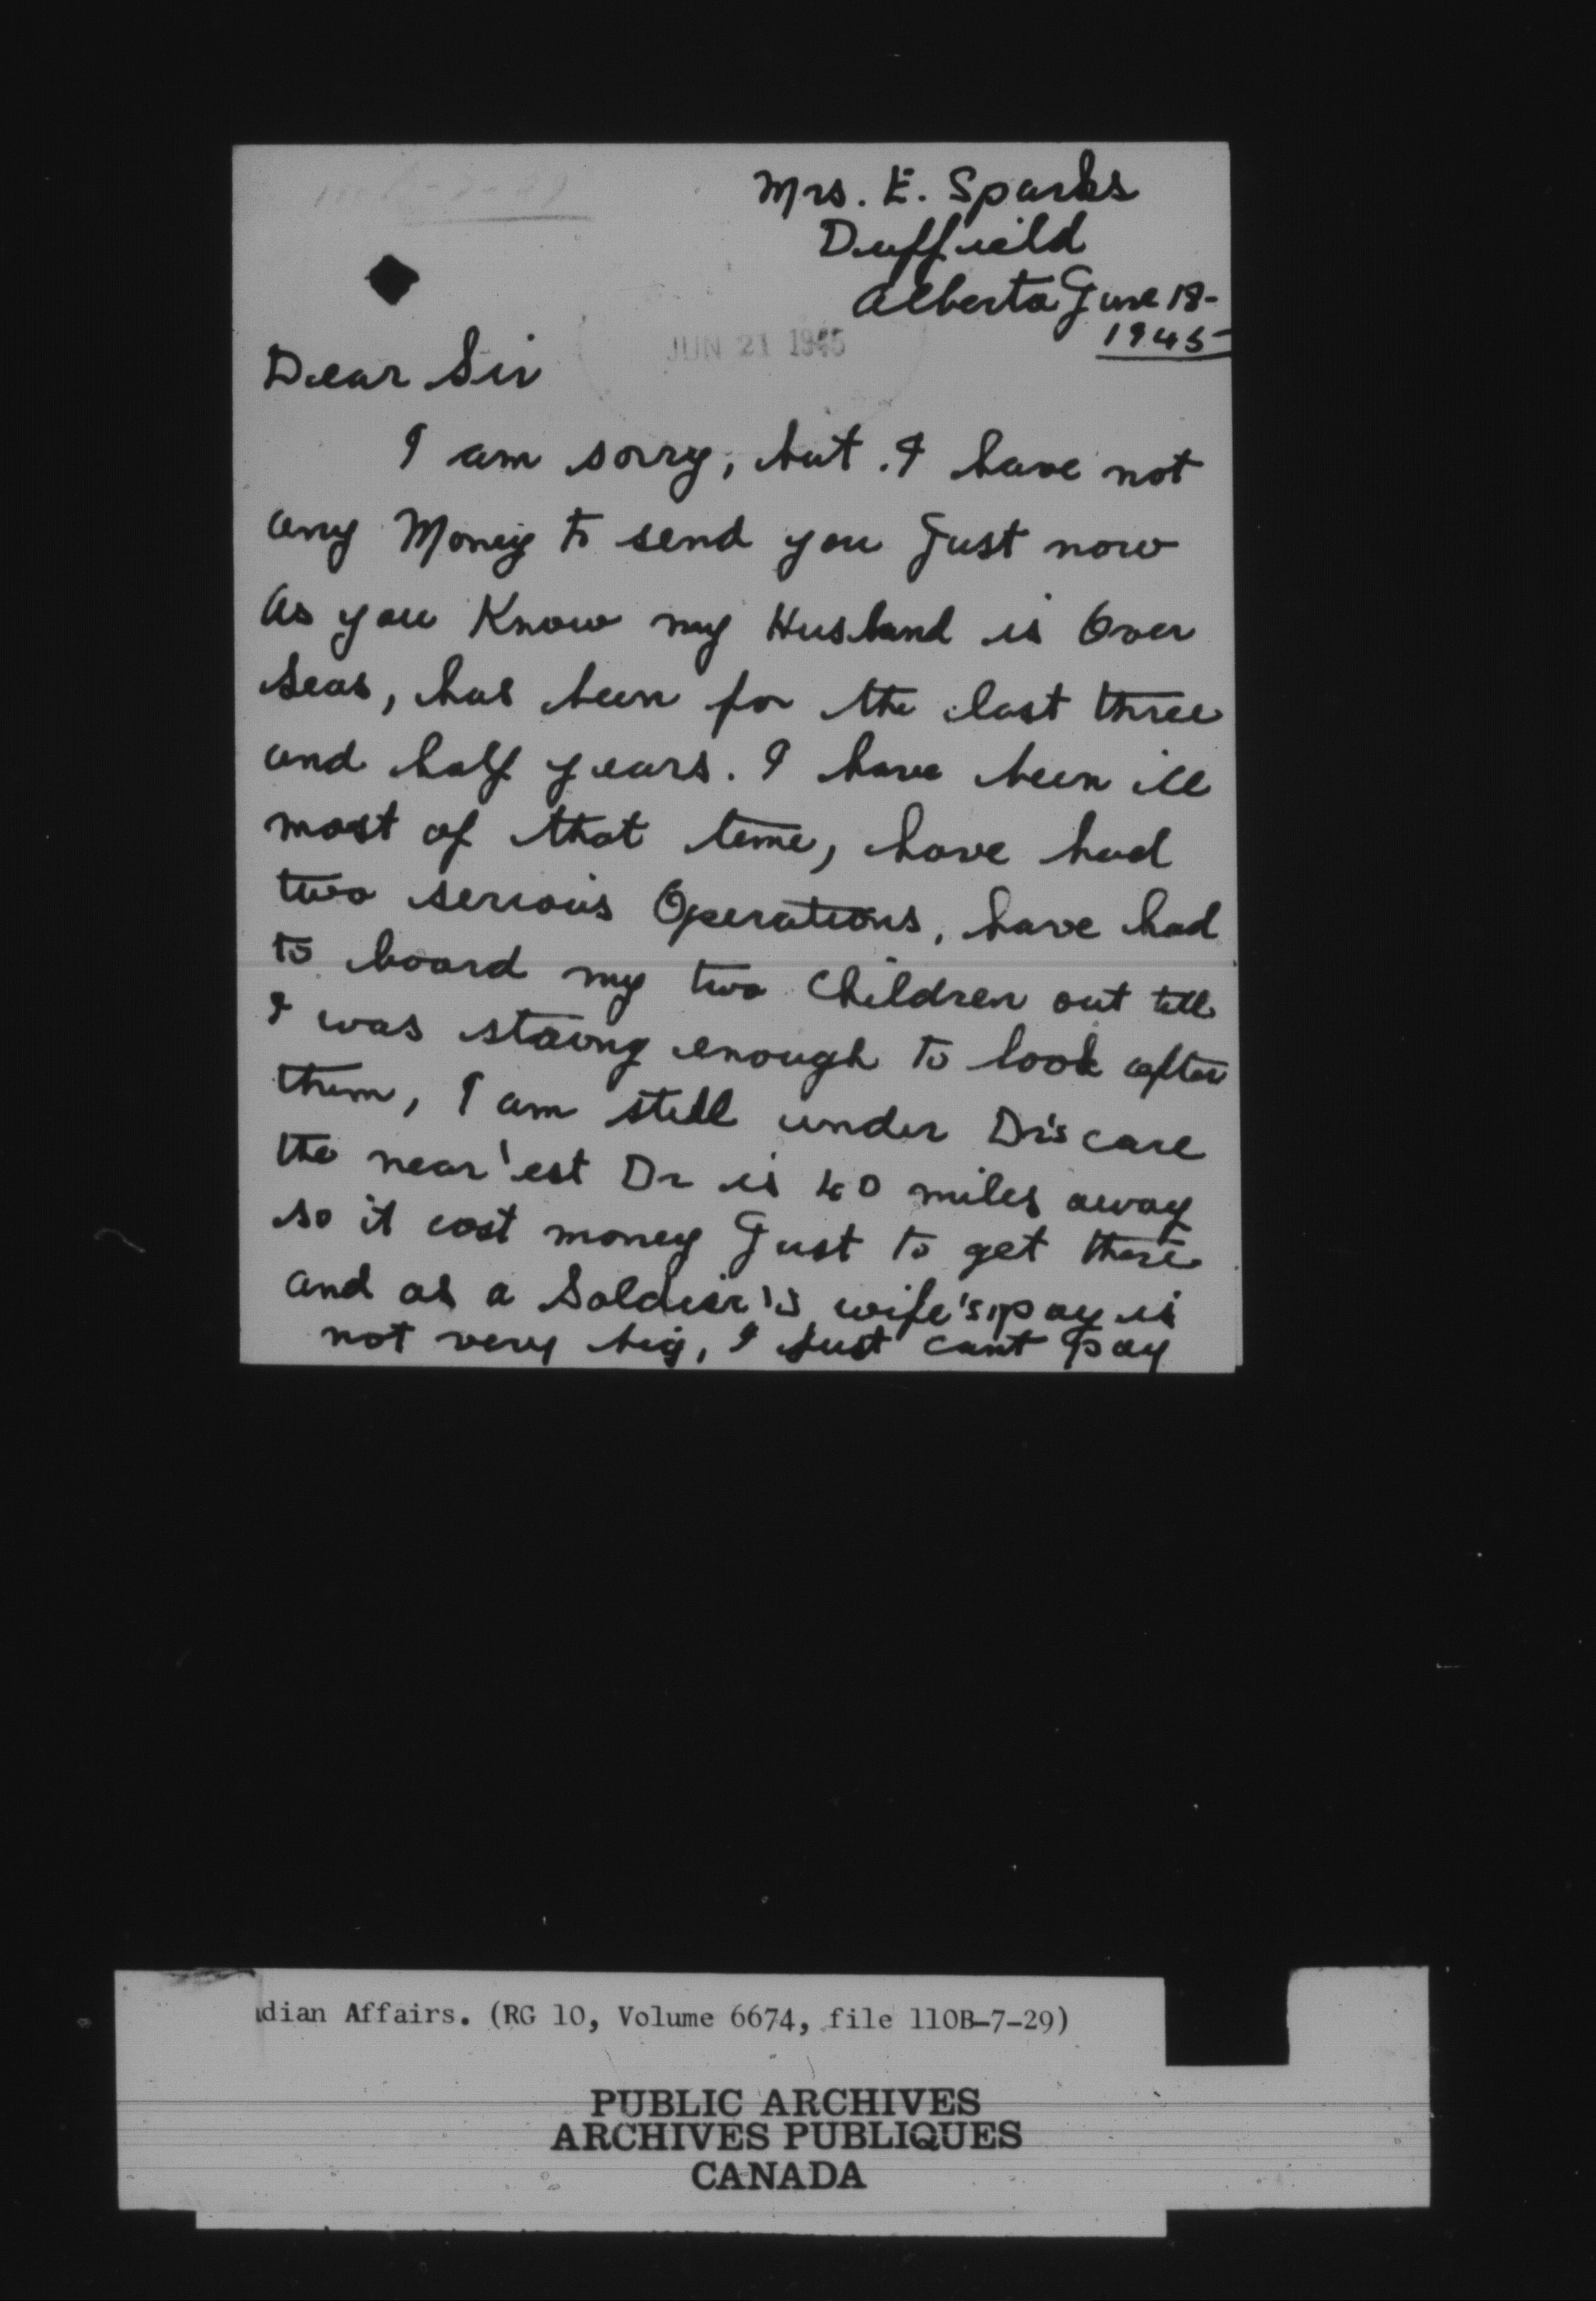 Mrs. E. Sparks
Duffield
Alberta June 18-
1945-
JUN 21 1945
Dear Sir
I am sorry, but I have not
any Money to send you Just now
as you Know my Husband is Over
seas, has been for the last three
and half years. I have been ill
most of that time, have had
two serious Operations, have had
to board my two Children out till
I was strong enough to look after
them, I am still under Dr's care
the near'est Dr is 40 miles away
so it cost money Just to get there
and as a Soldier's wife's pay is
not very big, I Just cant pay
dian Affairs. (RG 10, Volume 6674, file 110B-7-29)
PUBLIC ARCHIVES
ARCHIVES PUBLIQUES
CANADA